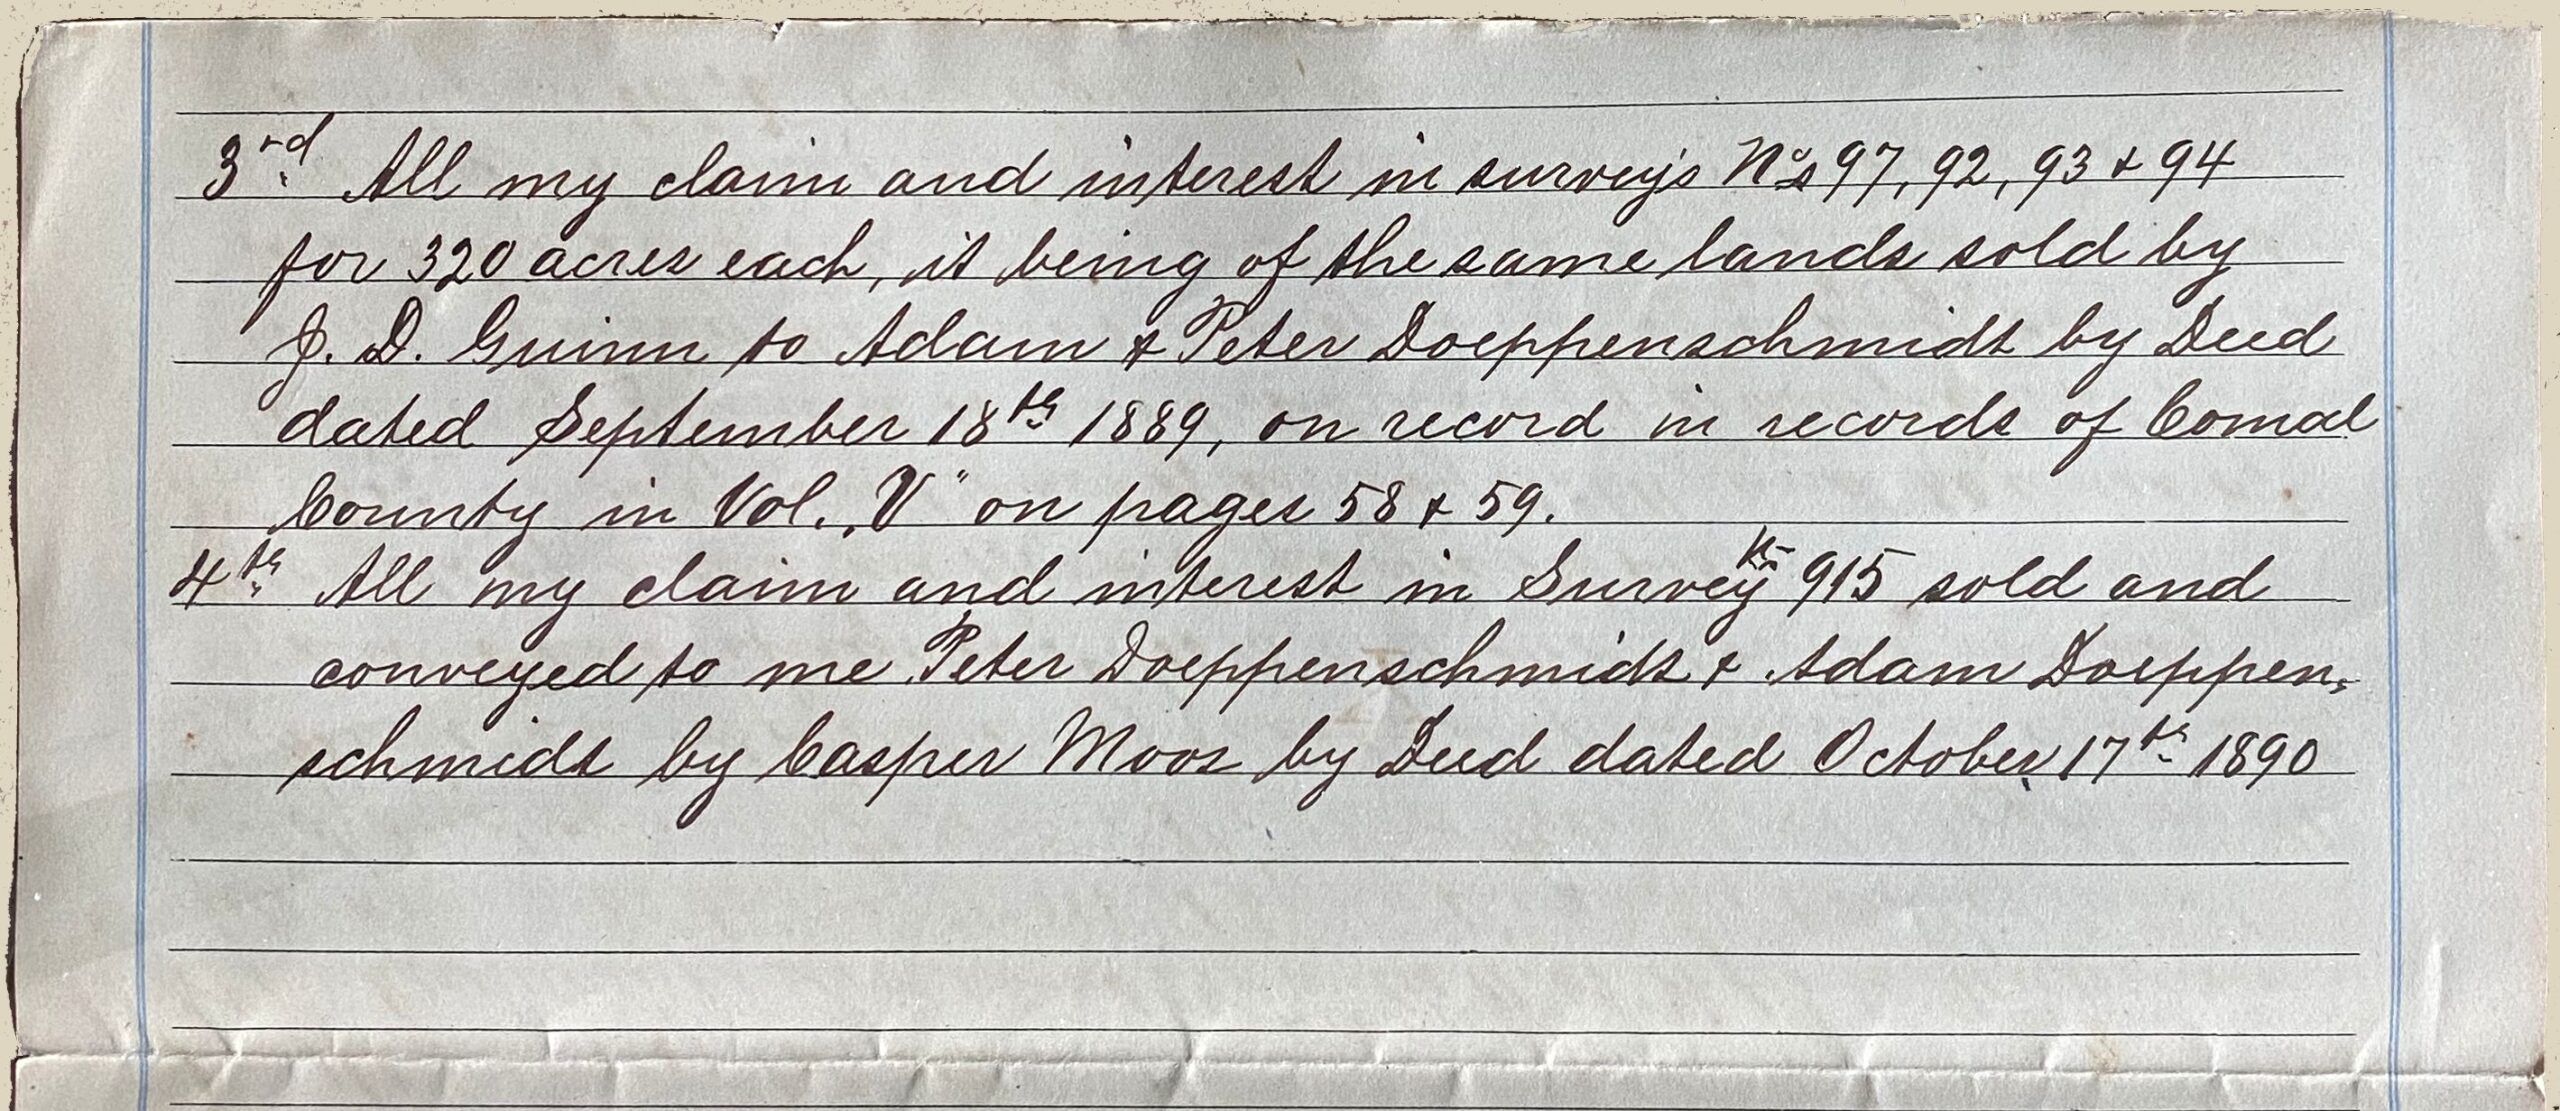 3rd. All my claim and interest in surveys Nos 97, 92, 93 & 94
for 320 acres each, it being of the same lands sold by
J. D. Guinn to Adam & Peter Doeppenschmidt by Deed
dated September 18th 1889, on record in records of Comal
County in Vol. „V" on pages 58 & 59.
4th. All my claim and interest in Survey No 915 sold and
conveyed to me Peter Doeppenschmidt & Adam Doeppen-
schmidt by Casper Moos by Deed dated October 17th 1890